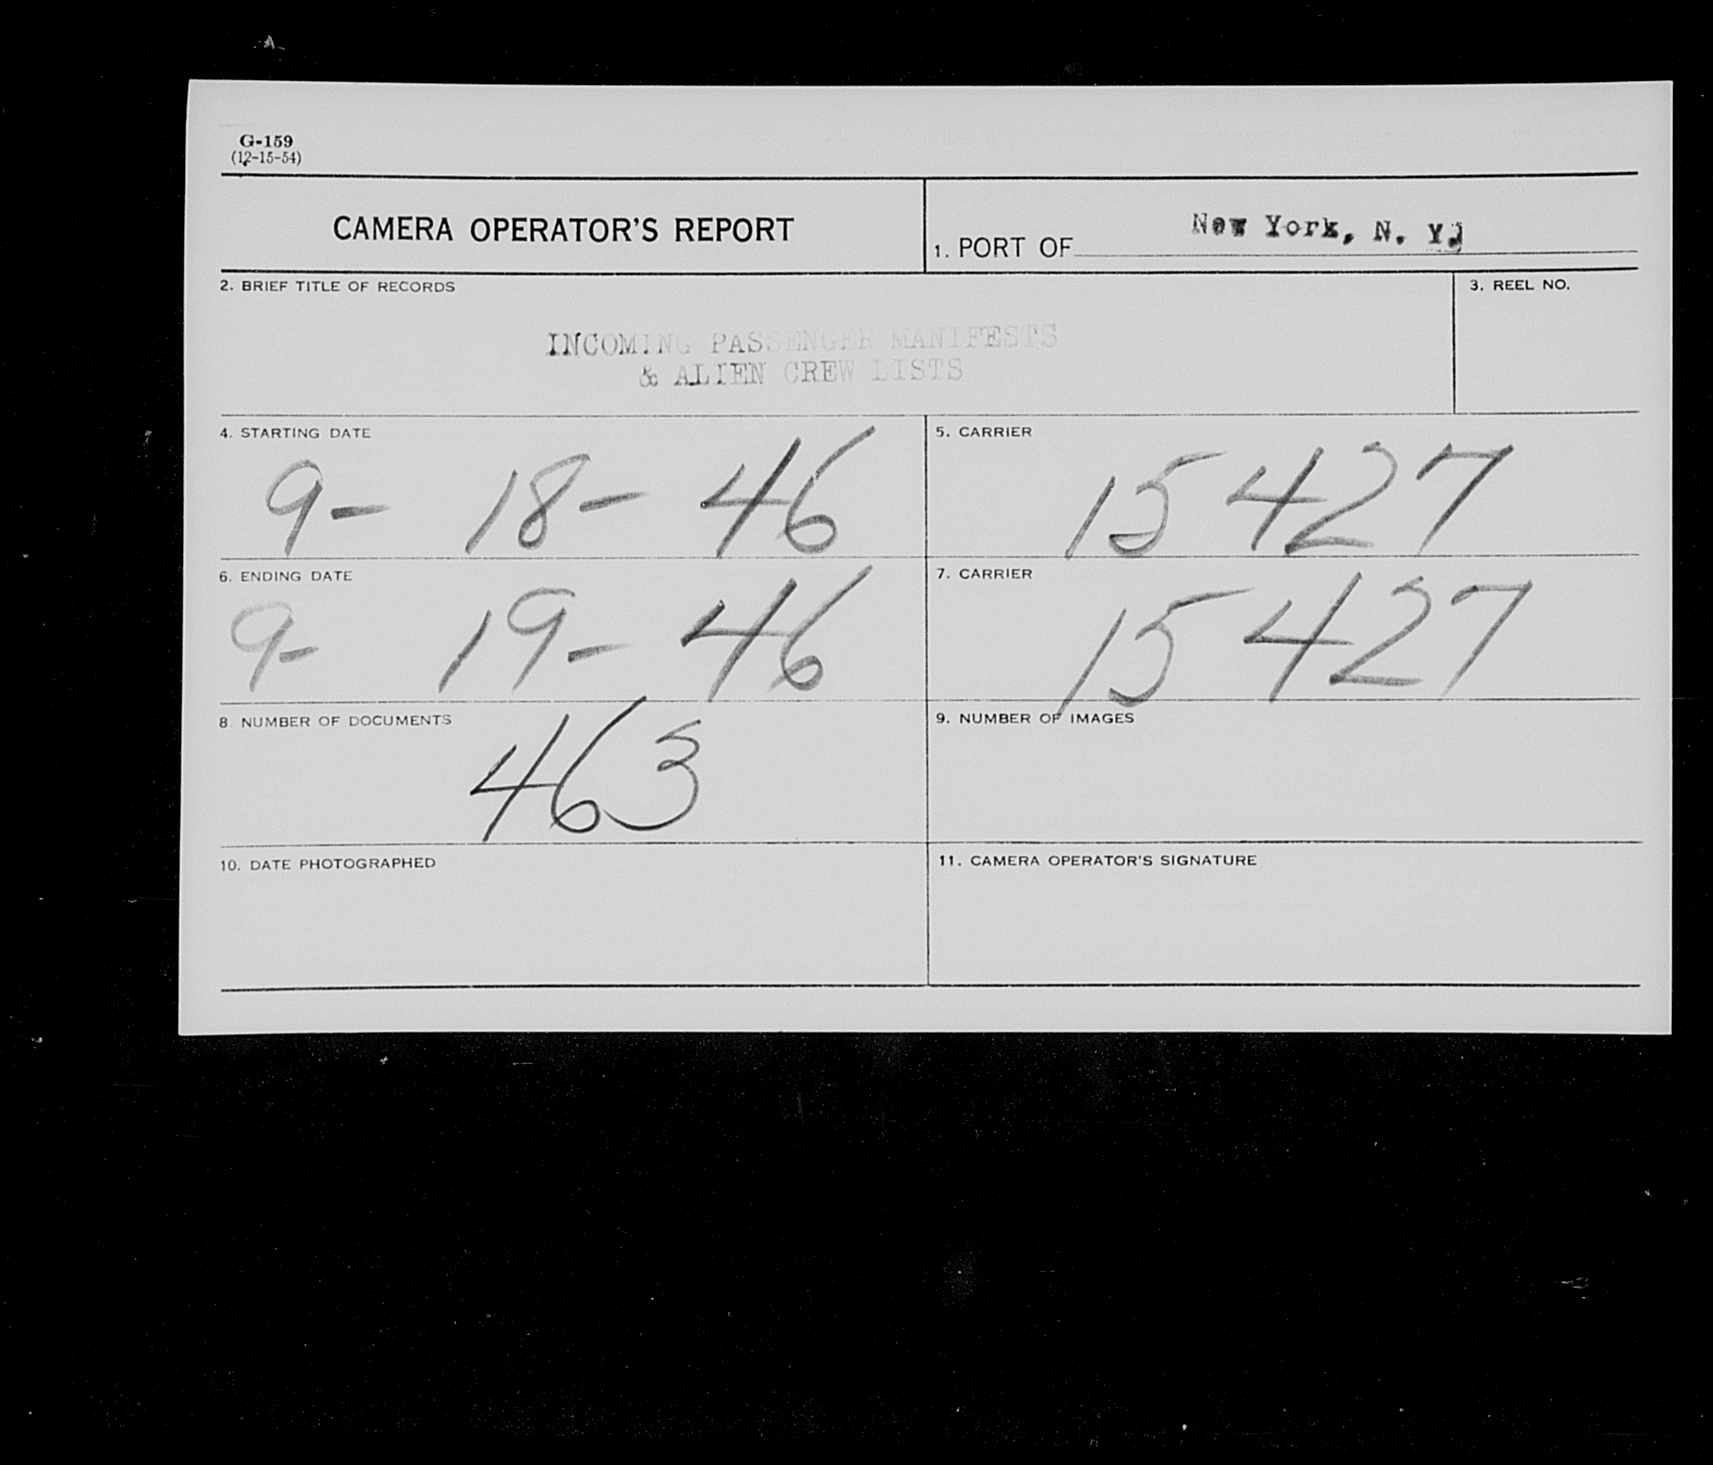 G-159
(12-15-54)
CAMERA OPERATOR'S REPORT
1. PORT OF New York, N. Y.
2. BRIEF TITLE OF RECORDS
3. REEL NO.
INCOMING PASSENGER MANIFESTS
& ALIEN CREW LISTS
4. STARTING DATE
9- 18- 46
5. CARRIER
15427
6. ENDING DATE
9- 19- 46
7. CARRIER
15427
8. NUMBER OF DOCUMENTS
463
9. NUMBER OF IMAGES
10. DATE PHOTOGRAPHED
11. CAMERA OPERATOR'S SIGNATURE